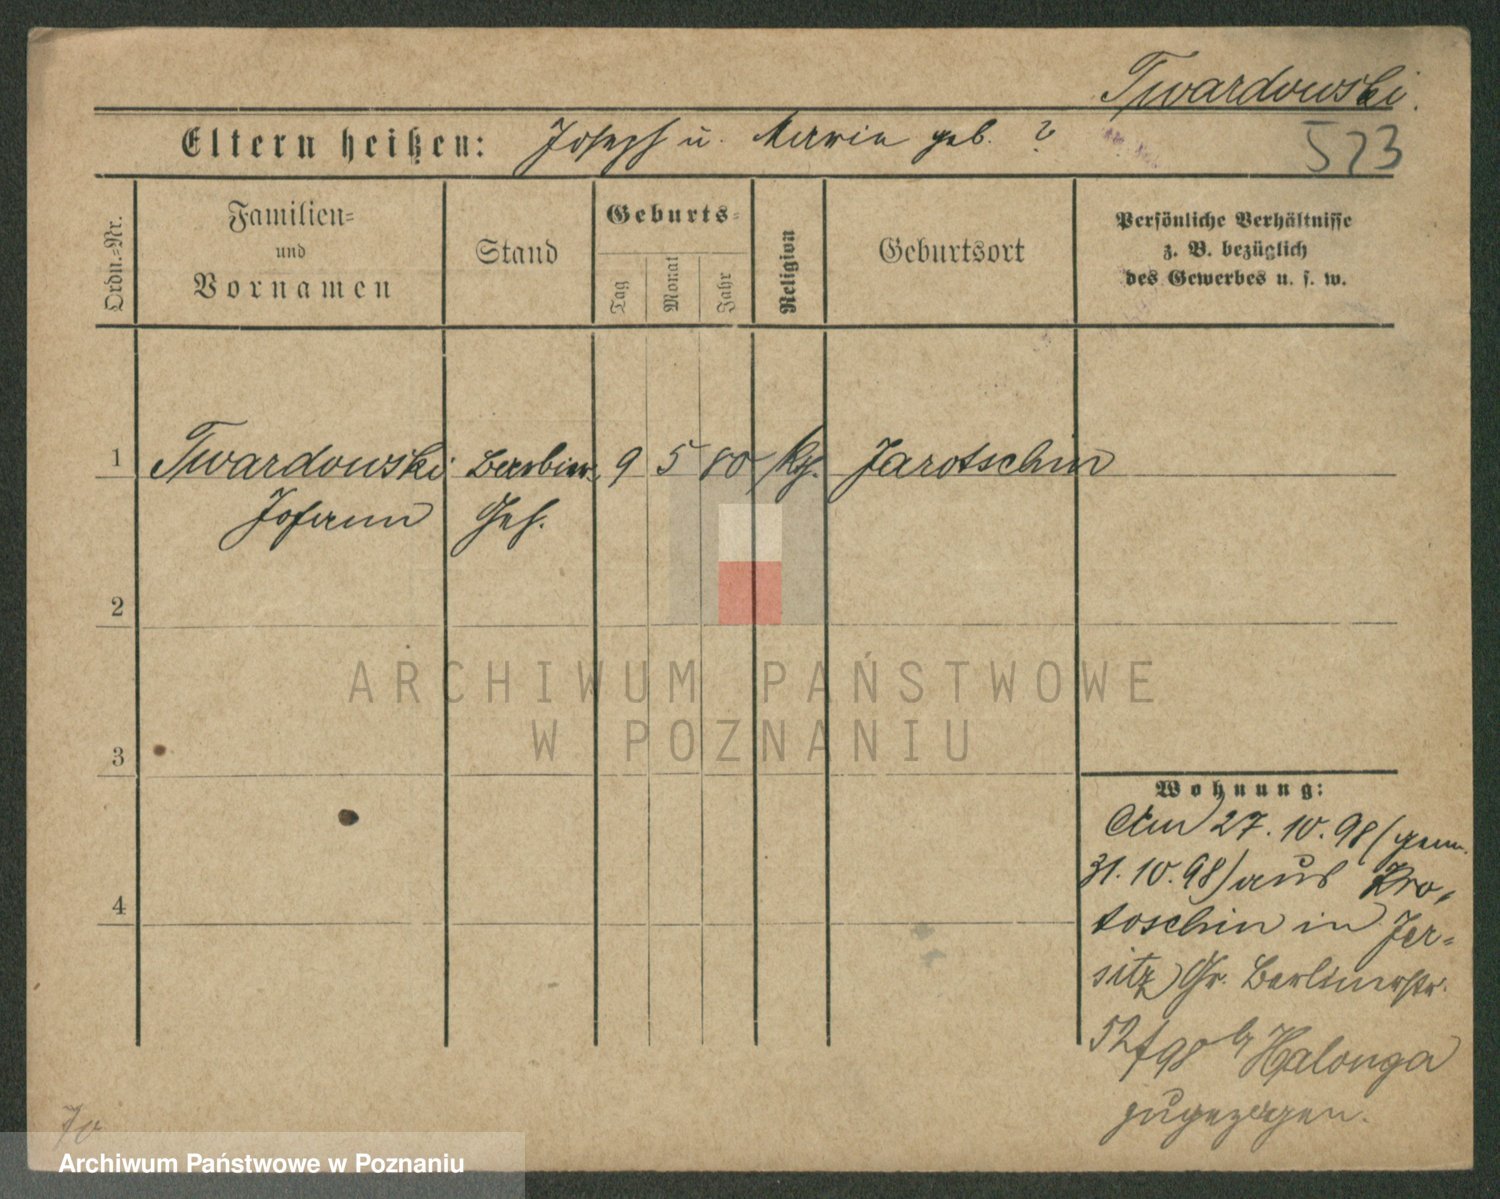 Twardowski.
Eltern heißen: Joseph u. Marie geb. ?
523
Ordn.=Nr.
Familien=
und
Vornamen
Stand
Geburts=
Tag
Monat
Jahr
Religion
Geburtsort
Persönliche Verhältnisse
z. B. bezüglich
des Gewerbes u. s. w.
1 Twardowski Barbier- 9 5 80 kth. Jarotschin
Johann Geh.
2
3
4
ARCHIWUM PAŃSTWOWE
W POZNANIU
Wohnung:
Am 27.10.98 (gem.
31.10.98) aus Kro-
toschin in Jer-
sitz Gr. Berlinerstr.
52/98 b/ Halonga
zugezogen.
Jo
Archiwum Państwowe w Poznaniu